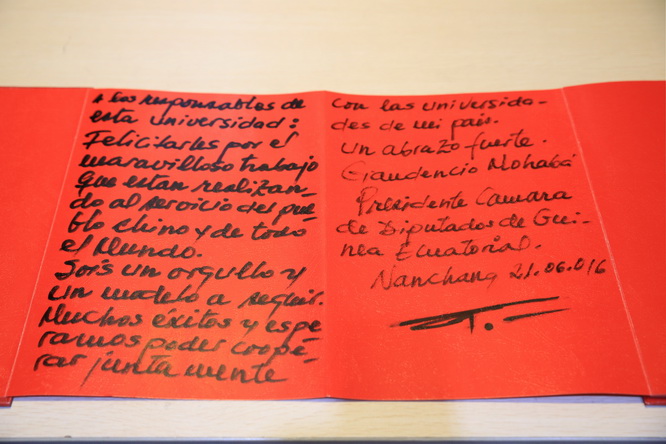 A los responsables de
esta universidad:
Felicitarles por el
maravilloso trabajo
que estan realizan-
do al servicio del pue-
blo chino y de todo
el Mundo.
Sois un orgullo y
un modelo a seguir.
Muchos éxitos y espe
ramos poder coope-
rar junta mente
con las universida-
des de mi país.
Un abrazo fuerte.
Gaudencio Mohabá
Presidente Camara
de Diputados de Gui-
nea Ecuatorial.
Nanchang 21.06.016